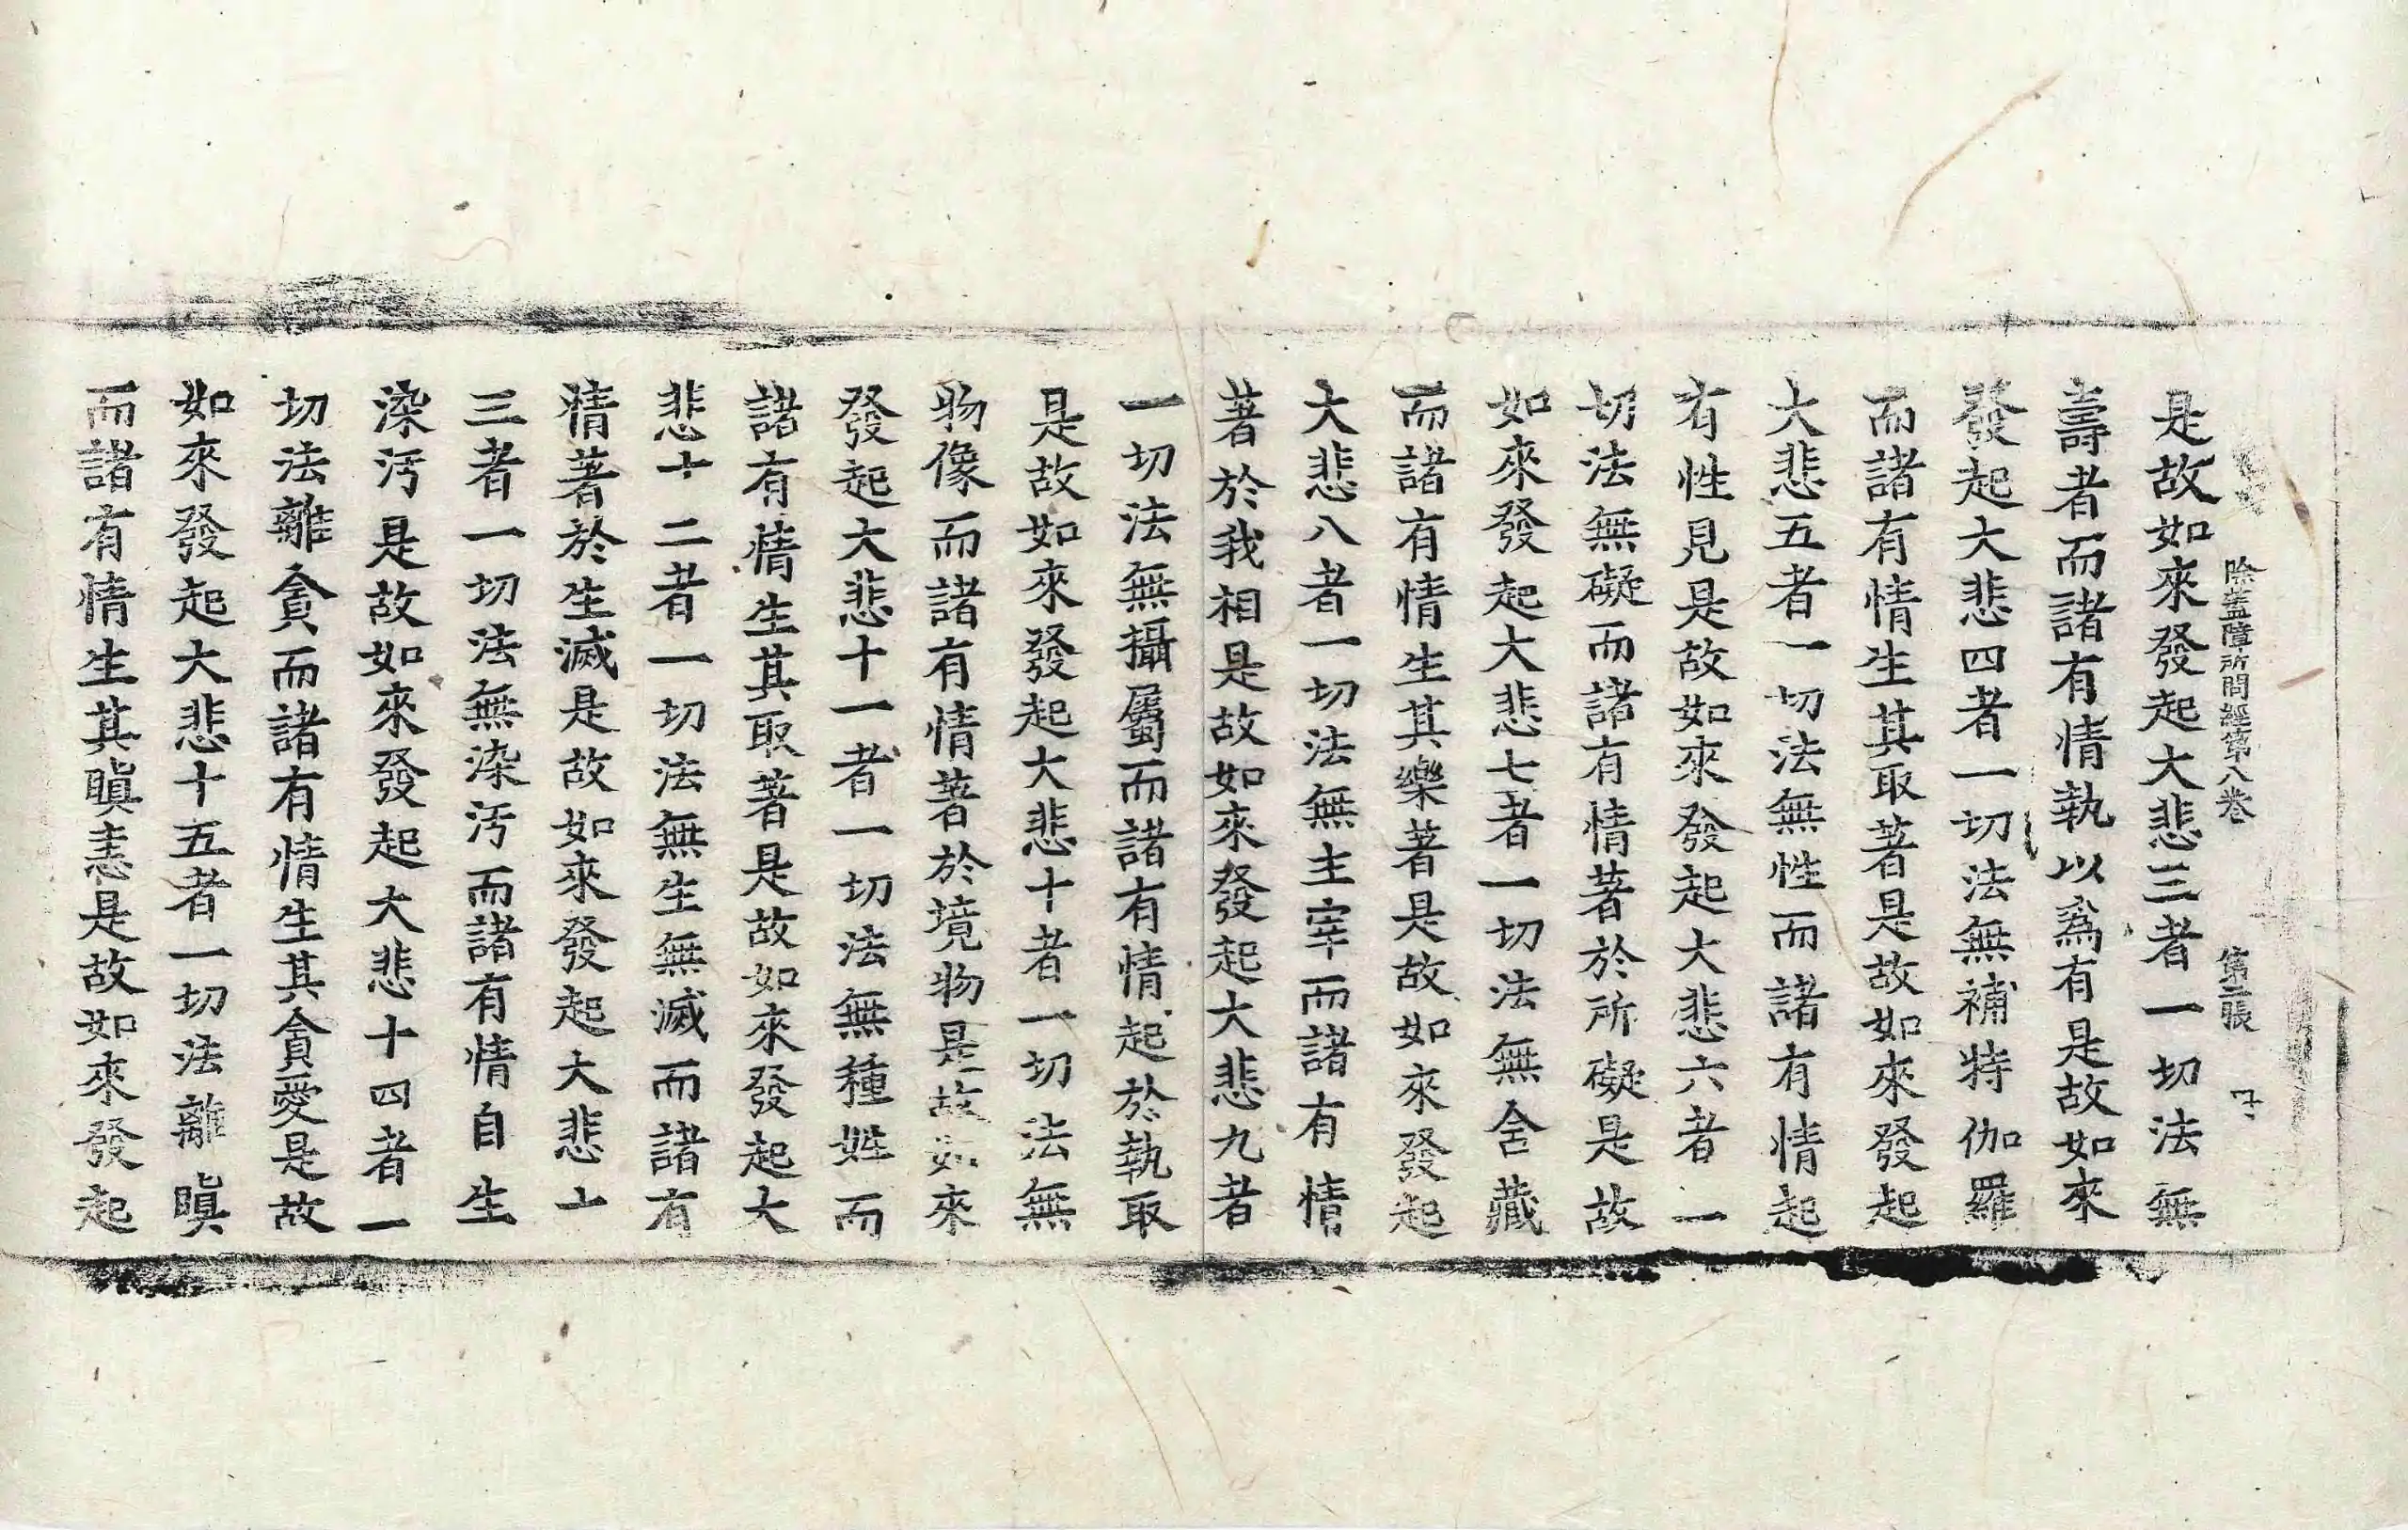 除蓋障所問經第八卷　第二張
是故如來發起大悲三者一切法無
壽者而諸有情執以爲有是故如來
發起大悲四者一切法無補特伽羅
而諸有情生其取著是故如來發起
大悲五者一切法無性而諸有情起
有性見是故如來發起大悲六者一
切法無礙而諸有情著於所礙是故
如來發起大悲七者一切法無舍藏
而諸有情生其樂著是故如來發起
大悲八者一切法無主宰而諸有情
著於我相是故如來發起大悲九者
一切法無攝屬而諸有情起於執取
是故如來發起大悲十者一切法無
物像而諸有情著於境物是故如來
發起大悲十一者一切法無種姓而
諸有情生其取著是故如來發起大
悲十二者一切法無生無滅而諸有
情著於生滅是故如來發起大悲十
三者一切法無染汚而諸有情自生
染汚是故如來發起大悲十四者一
切法離貪而諸有情生其貪愛是故
如來發起大悲十五者一切法離瞋
而諸有情生其瞋恚是故如來發起